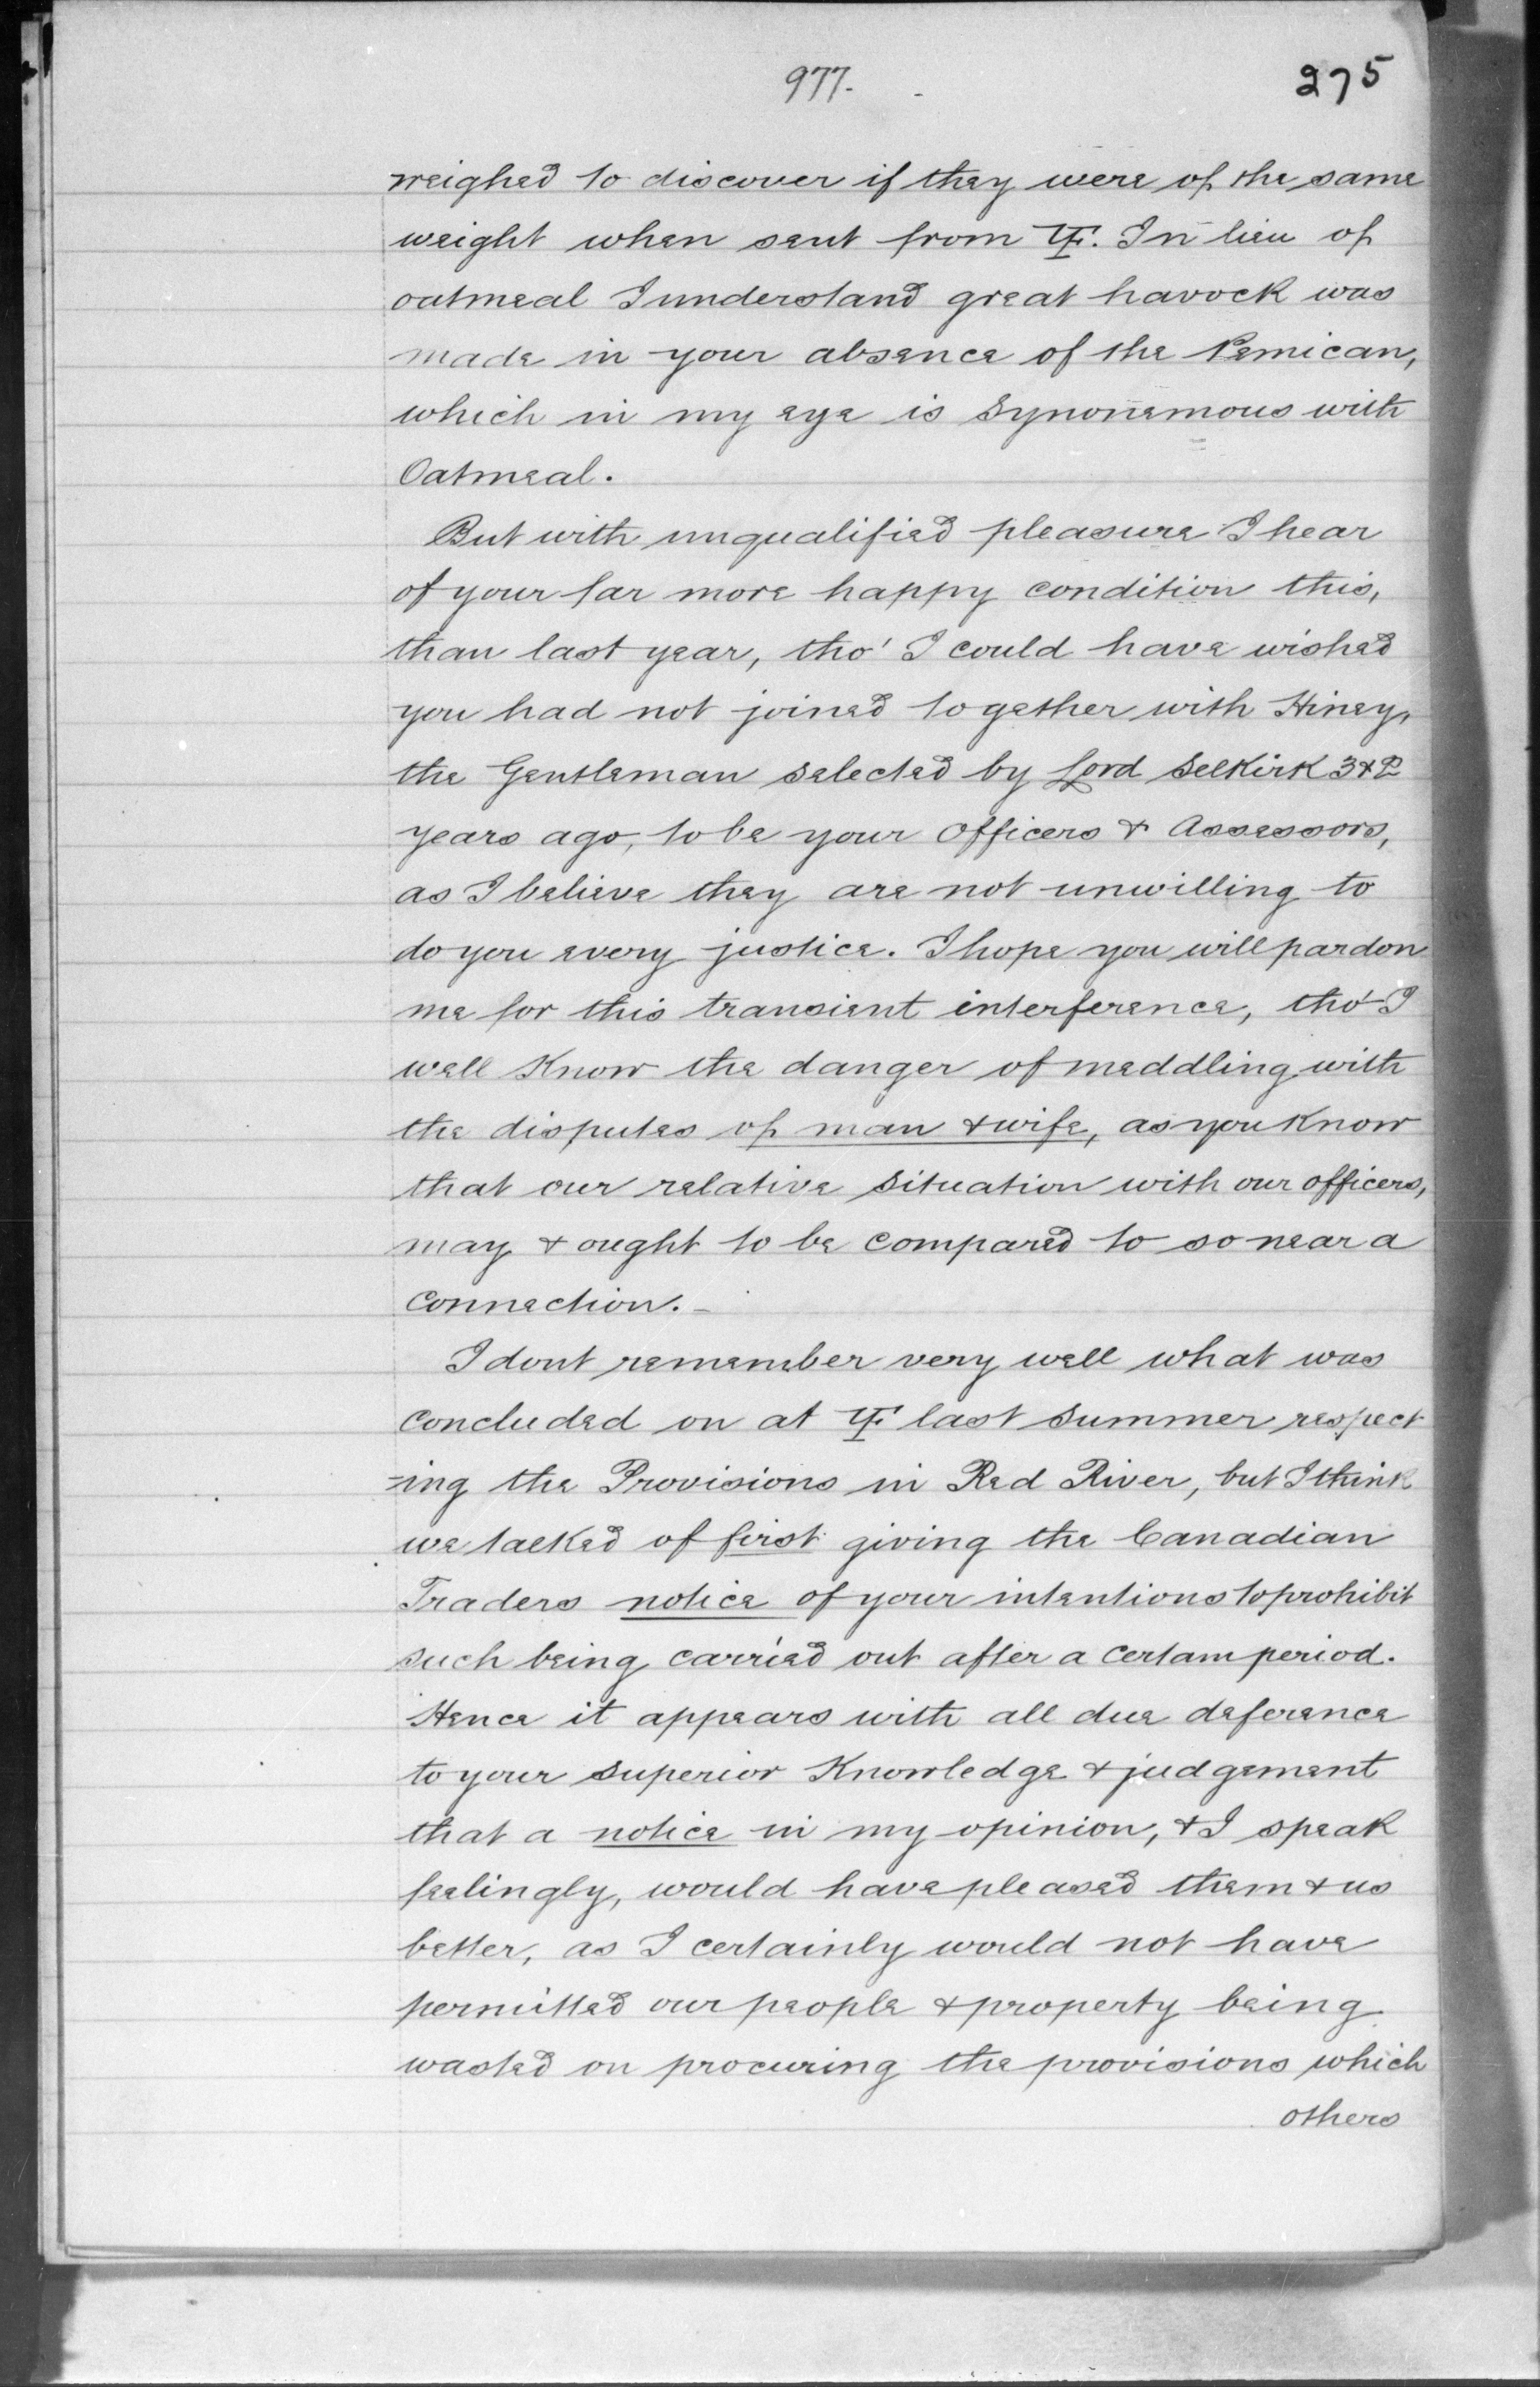 977.
275
weighed to discover if they were of the same
weight when sent from YF. In lieu of
oatmeal I understand great havock was
made in your absence of the Pemican,
which in my eye is synonemous with
Oatmeal.
But with unqualified pleasure I hear
of your far more happy condition this,
than last year, tho' I could have wished
you had not joined together with Hiney,
the Gentleman selected by Lord Selkirk 3 & 2
years ago, to be your officers & Assessors,
as I believe they are not unwilling to
do you every justice. I hope you will pardon
me for this transient interference, tho' I
well know the danger of meddling with
the disputes of man & wife, as you know
that our relative situation with our officers,
may & ought to be compared to so near a
connection. -
I dont remember very well what was
concluded on at YF last summer respect
-ing the Provisions in Red River, but I think
we talked of first giving the Canadian
Traders notice of your intentions to prohibit
such being carried out after a certain period.
Hence it appears with all due deference
to your superior Knowledge & judgement
that a notice in my opinion, & I speak
feelingly, would have pleased them & us
better, as I certainly would not have
permitted our people & property being
wasted on procuring the provisions which
others